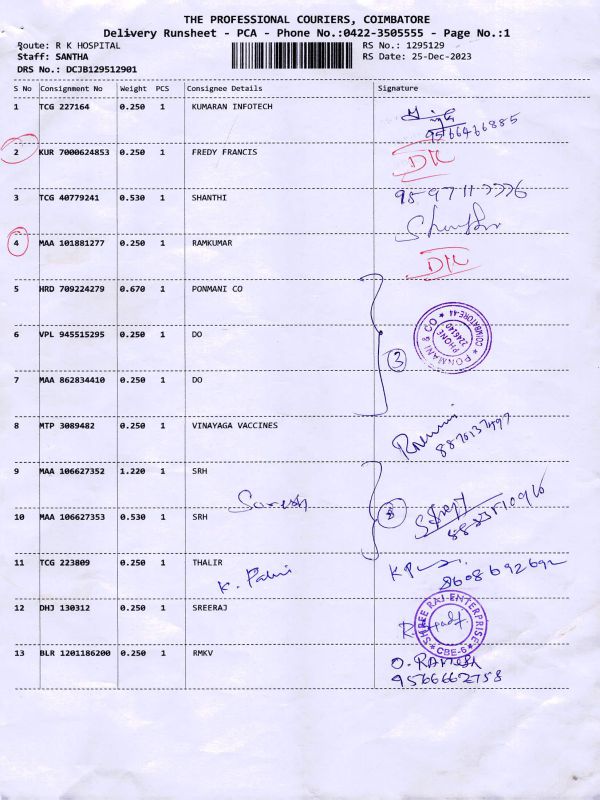 THE PROFESSIONAL COURIERS, COIMBATORE
Delivery Runsheet - PCA - Phone No.:0422-3505555 - Page No.:1
Route: R K HOSPITAL RS No.: 1295129
Staff: SANTHA RS Date: 25-Dec-2023
DRS No.: DCJB129512901
S No Consignment No Weight PCS Consignee Details Signature
1 TCG 227164 0.250 1 KUMARAN INFOTECH
9566466885
2 KUR 7000624853 0.250 1 FREDY FRANCIS
3 TCG 40779241 0.530 1 SHANTHI
4 MAA 101881277 0.250 1 RAMKUMAR
5 HRD 709224279 0.670 1 PONMANI CO
PONMANI & CO ★ COIMBATORE-44 ★
PHONE
2246140
6 VPL 945515295 0.250 1 DO
3
7 MAA 862834410 0.250 1 DO
8 MTP 3089482 0.250 1 VINAYAGA VACCINES
9 MAA 106627352 1.220 1 SRH
Suresh
10 MAA 106627353 0.530 1 SRH
11 TCG 223809 0.250 1 THALIR
8608692692
12 DHJ 130312 0.250 1 SREERAJ
SHREE RAJ ENTERPRISE ★ CBE-6 ★
13 BLR 1201186200 0.250 1 RMKV
O. RAMESH
9566662758